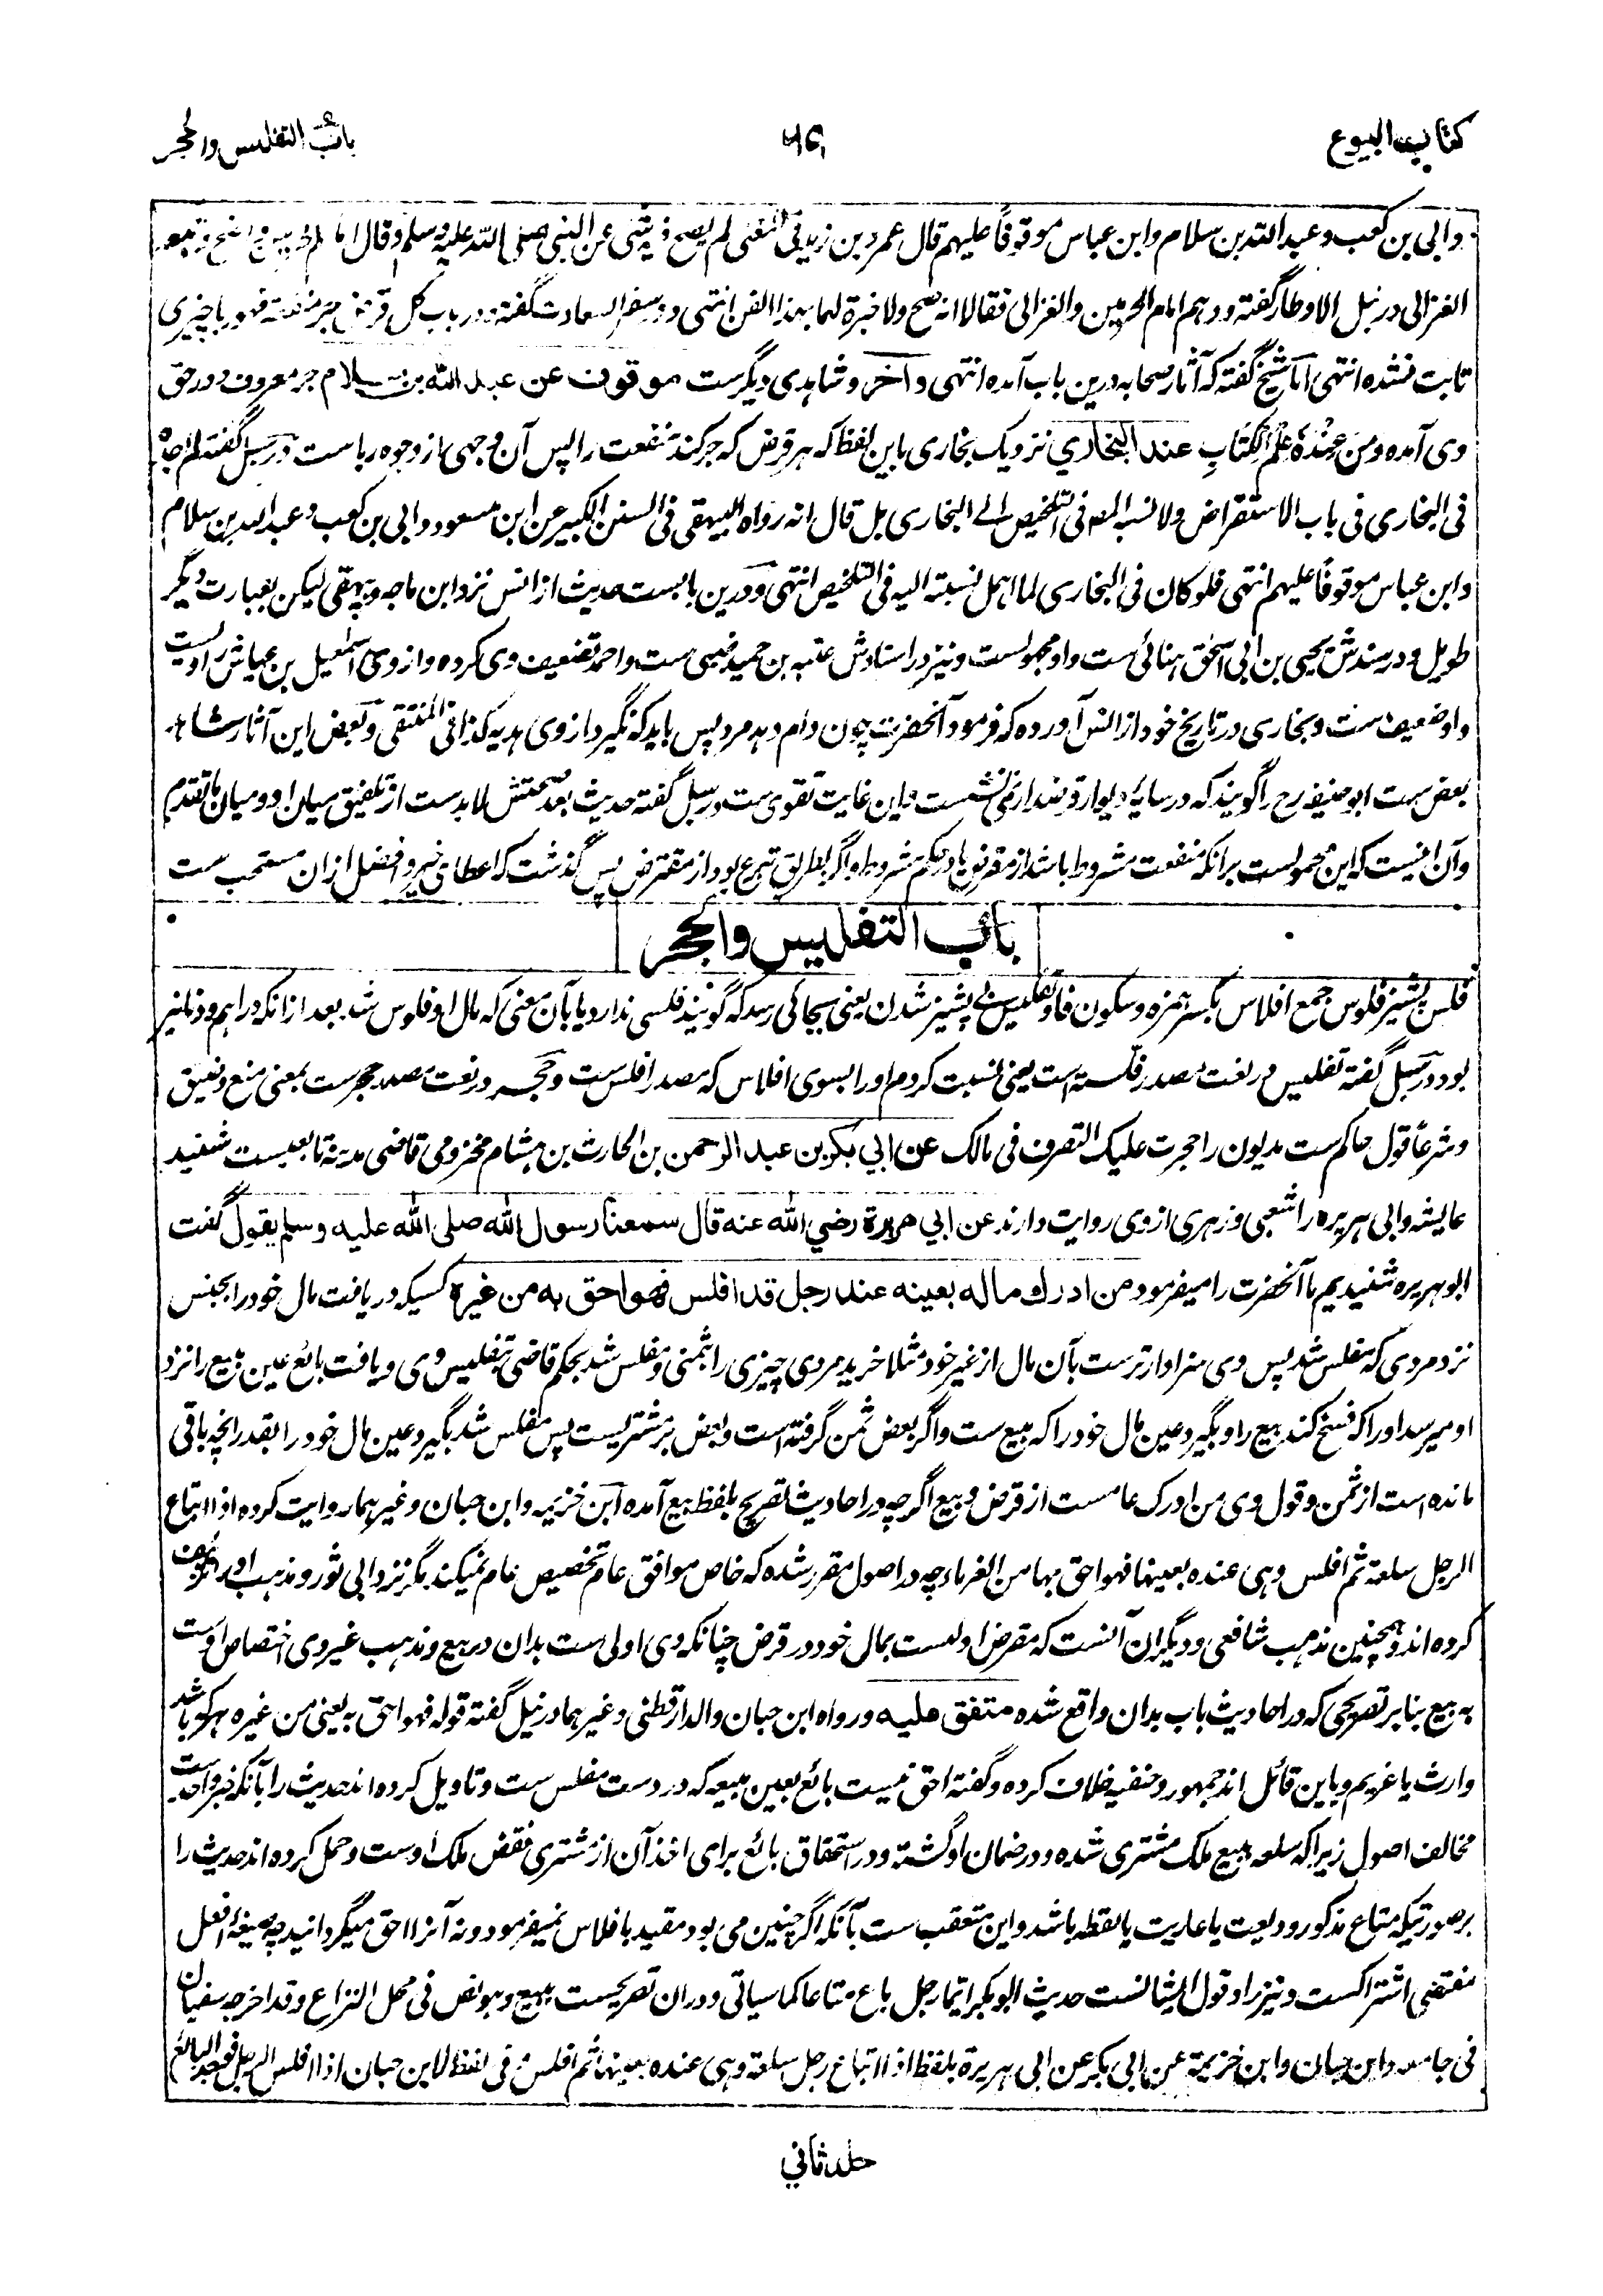 کتاب البیوع
باب التفلیس والحجر
وابی بن کعب وعبد الله بن سلام وابن عباس موقوفاً علیهم قال عمرو بن زید فی المغنی لم یصح فیه شئی عن النبی صلی الله علیه وسلم وقال امام
الغزالی در نیل الاوطار گفته ووهم امام الحرمین والغزالی فقالا انه صح ولا خبرة لهما بهذا الفن انتهی ودر سفر السعادت گفته ودر باب کل قرض جر منفعة فهو ربا چیزی
ثابت نشده انتهی اما شیخ گفته که آثار صحابه درین باب آمده انتهی وآخر وشاهدی دیگرست موقوف عن عبد الله بن سلام جر معروف ودر حق
وی آمده ومن عنده علم الکتاب عند البخاری نزدیک بخاری باین لفظ که هر قرض که جر کند منفعت را پس آن وجهی از وجوه رباست در سبل گفته لم اجده
فی البخاری فی باب الاستقراض ولا نسبه المصـ فی التلخیص الی البخاری بل قال انه رواه البیهقی فی السنن الکبیر عن ابن مسعود وابی بن کعب وعبد الله بن سلام
وابن عباس موقوفاً علیهم انتهی فلو کان فی البخاری لما اهمل نسبته الیه فی التلخیص انتهی ودرین بابست حدیث از انس نزد ابن ماجه وبیهقی لیکن بعبارت دیگر
طویل ودر سندش یحیی بن ابی اسحق هنائی ست واو مجهولست ونیز در اسنادش عتبه بن حمید ضبی هست واحمد تضعیف وی کرده واز وی اسمعیل بن عیاش راویست
واو ضعیف ست وبخاری در تاریخ خود از انس آورده که فرمود آنحضرت چون وام دهد مرد پس باید که نگیرد از وی هدیه کذا فی المنتقی وبعض این آثار شاهد
بعض ست ابو حنیفه رح را گویند که در سایهٔ دیوار قرضدار نمی نشست واین غایت تقوی ست در سبل گفته حدیث بعد صحتش لابدست از تلفیق میان او ومیان ما تقدم
وآن اینست که این محمولست بر آنکه منفعت مشروط باشد از مقرض یا در حکم مشروط واگر بطریق تبرع بود از مقترض پس گذشت که اعطای خیر وافضل ازان مستحب ست
باب التفلیس والحجر
فلس پشیز فلوس جمع افلاس بکسر همزه وسکون فا وتفلیس بی پشیز شدن یعنی بجائی رسد که گویند فلسی ندارد یا بآن معنی که مال او فلوس شد بعد از آنکه دراهم ودنانیر
بود در سبل گفته تفلیس در لغت مصدر فلسته است یعنی نسبت کردم او را بسوی افلاس که مصدر افلس ست وحجر در لغت مصدر حجرست بمعنی منع وضیق
وشرعاً قول حاکم ست مدیون را حجرت علیک التصرف فی مالک عن ابی بکر بن عبد الرحمن بن الحارث بن هشام مخزومی قاضی مدینه تابعیست شنید
عایشه وابی هریره را شعبی وزهری از وی روایت دارند عن ابی هریرة رضی الله عنه قال سمعنا رسول الله صلی الله علیه وسلم یقول گفت
ابو هریره شنیدیم ما آنحضرت را میفرمود من ادرک ماله بعینه عند رجل قد افلس فهو احق به من غیره کسیکه دریافت مال خود را بجنس
نزد مردی که مفلس شد پس وی سزاوارترست بآن مال از غیر خود مثلا خرید مردی چیزی را بثمنی ومفلس شد بحکم قاضی بتفلیس وی ویافت بائع عین مبیع را نزد
او میرسد او را که فسخ کند بیع را وبگیرد عین مال خود را که مبیع ست واگر بعض ثمن گرفته است وبعض بر مشتریست پس مفلس شد بگیرد عین مال خود را بقدر آنچه باقی
مانده است از ثمن وقول وی من ادرک عامست از قرض وبیع اگرچه در احادیث تصریح بلفظ بیع آمده ابن خزیمه وابن حبان وغیرهما روایت کرده اذا ابتاع
الرجل سلعة ثم افلس وهی عنده بعینها فهو احق بها من الغرماء چه در اصول مقرر شده که خاص موافق عام تخصیص عام نمیکند مگر نزد ابی ثور ومذهب او را
کرده اند وهمچنین مذهب شافعی ودیگران آنست که مقرض اولیست بمال خود در قرض چنانکه وی اولی ست بدان در بیع ومذهب غیر وی اختصاص اوست
به بیع بنا بر تصریحی که در احادیث باب بدان واقع شده متفق علیه ورواه ابن حبان والدارقطنی وغیرهما در نیل گفته قوله فهو احق به یعنی من غیره هر که باشد
وارث یا غریم وباین قائل اند جمهور وحنفیه خلاف کرده وگفته احق نیست بائع بعین مبیعه که در دست مفلس ست وتاویل کرده اند حدیث را بآنکه خبر واحدست
مخالف اصول زیرا که سلعه بیع ملک مشتری شده ودر ضمان او گشته ودر استحقاق بائع برای اخذ آن از مشتری نقض ملک اوست وحمل کرده اند حدیث را
بر صورتیکه متاع مذکور ودیعت یا عاریت یا لقطه باشد واین متعقب ست بآنکه اگر چنین می بود مقید بافلاس نمیفرمود ونه آنرا احق میگردانید چه صیغهٔ افعل
مقتضی اشتراکست ونیز راد قول ایشانست حدیث ابوبکر ایما رجل باع متاعا کما سیاتی ودران تصریحست ببیع وهو نص فی محل النزاع وقد اخرجه سفیان
فی جامعه وابن حبان وابن خزیمة عن ابی بکر عن ابی هریرة بلفظ اذا ابتاع رجل سلعة وهی عنده بعینها ثم افلس وفی لفظ لابن حبان اذا افلس الرجل فوجد البائع
جلد ثانی